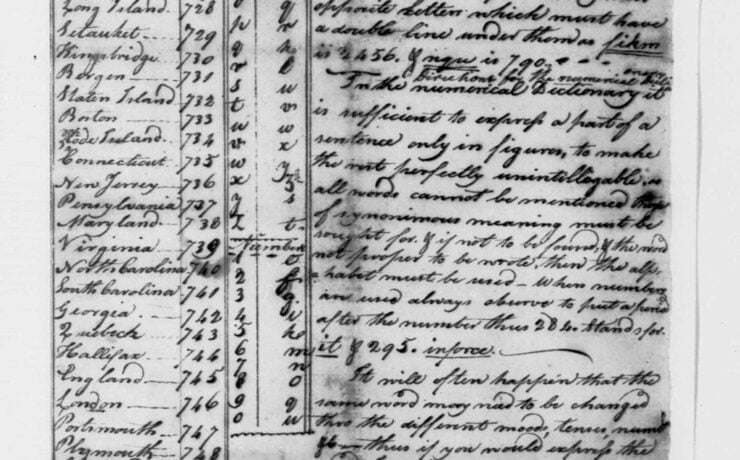 Long Island 728
Setauket 729
Kingsbridge 730
Bergen 731
Staten Island 732
Boston 733
Rhode Island 734
Connecticut 735
New Jersey 736
Pensylvania 737
Maryland 738
Virginia 739
North Carolina 740
South Carolina 741
Georgia 742
Quebeck 743
Hallifax 744
England 745
London 746
Portsmouth 747
Plymouth 748
o q
p r
q k
r l
s u
t v
u w
v x
w y
x z
y s
z t
Numbers
1 e
2 f
3 g
4 i
5 k
6 m
7 n
8 o
9 q
0 u
opposite letters which must have
a double line under them as fikm
is 2456. & nqu is 790.
Directions for the numerical
In the numerical Dictionary it
is sufficient to express a part of a
sentence only in figures, to make
the rest perfectly unintillegable, as
all words cannot be mentioned those
of synonimous meaning must be
sought for. & if not to be found, & the word
not proper to be wrote, then the alp-
habet must be used - When numbers
are used always observe to put a period
after the number thus 284. stands for
it & 295. inforce.
It will often happen that the
same word may need to be changed
thro the different moods, tenses, numb
&c - thus if you would express the